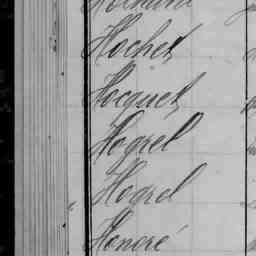 Hochet
Hocquet
Hogrel
Hogrel
Honoré